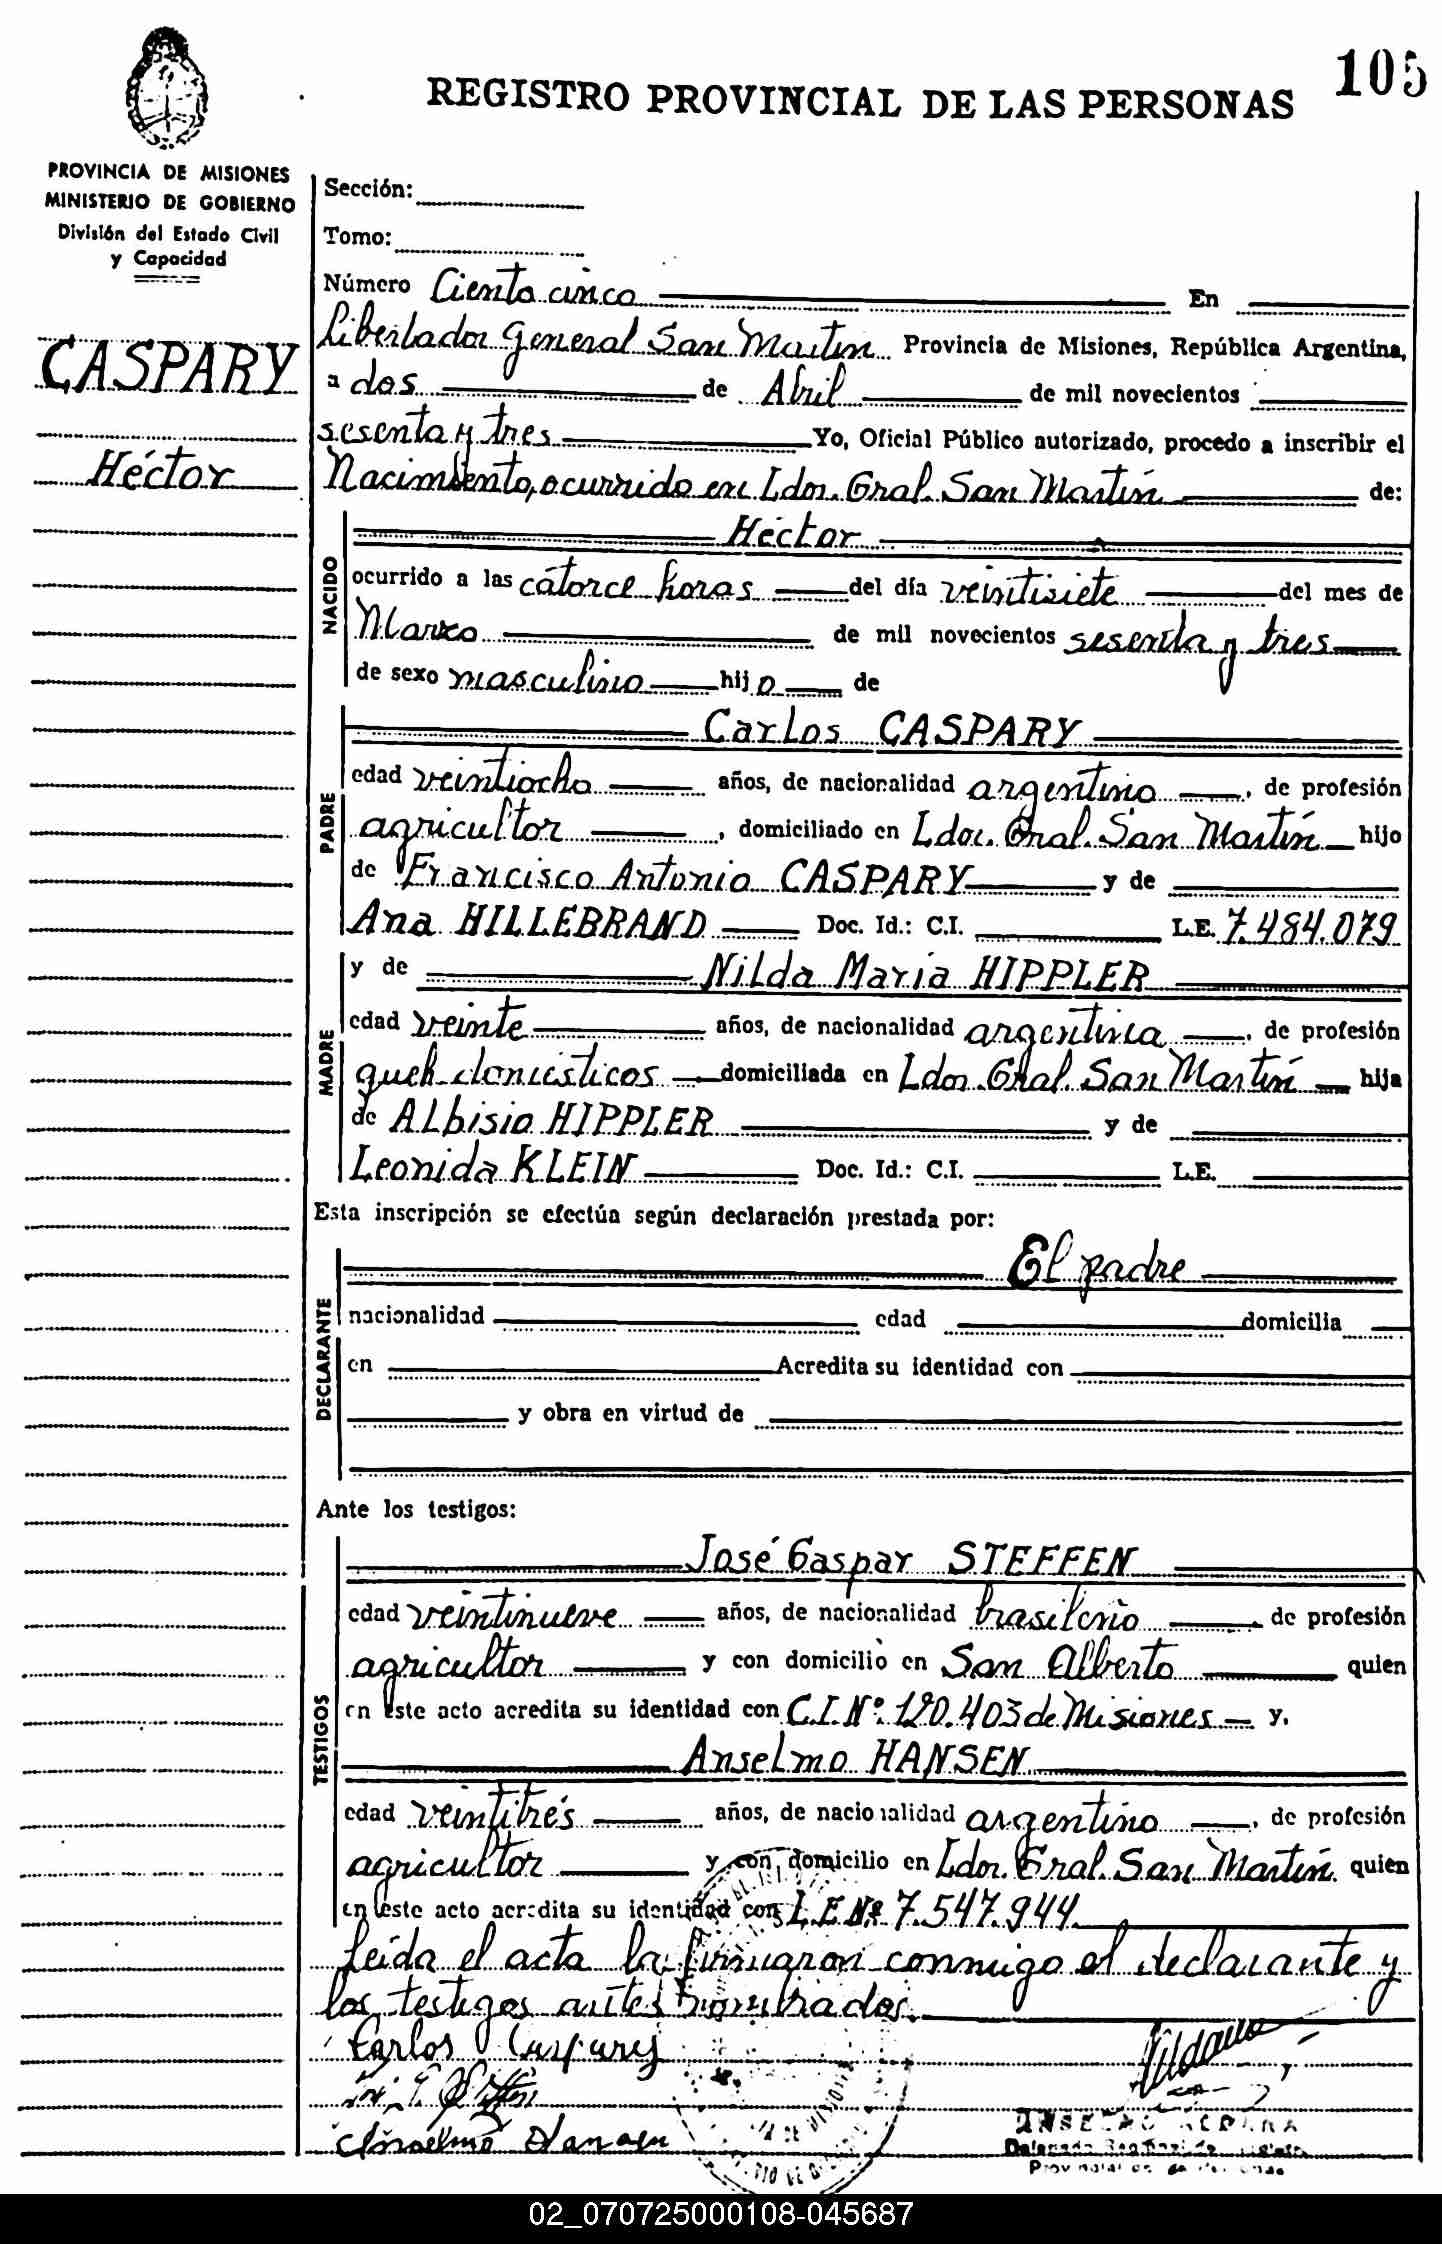 105
REGISTRO PROVINCIAL DE LAS PERSONAS
PROVINCIA DE MISIONES
MINISTERIO DE GOBIERNO
División del Estado Civil
y Capacidad
CASPARY
Héctor
Sección:
Tomo:
Número Ciento cinco En
Libertador General San Martín Provincia de Misiones, República Argentina,
a dos de Abril de mil novecientos
sesenta y tres Yo, Oficial Público autorizado, procedo a inscribir el
Nacimiento, ocurrido en Ldor. Gral. San Martín de:
NACIDO
Héctor
ocurrido a las catorce horas del día veintisiete del mes de
Marzo de mil novecientos sesenta y tres
de sexo masculino hijo de
PADRE
Carlos CASPARY
edad veintiocho años, de nacionalidad argentino, de profesión
agricultor, domiciliado en Ldor. Gral. San Martín hijo
de Francisco Antonio CASPARY y de
Ana HILLEBRAND Doc. Id.: C.I. L.E. 7.484.079
MADRE
y de Nilda Maria HIPPLER
edad veinte años, de nacionalidad argentina, de profesión
queh. domésticos domiciliada en Ldor. Gral. San Martín hija
de Albisio HIPPLER y de
Leonida KLEIN Doc. Id.: C.I. L.E.
Esta inscripción se efectúa según declaración prestada por:
DECLARANTE
El padre
nacionalidad edad domicilia
en Acredita su identidad con
y obra en virtud de
Ante los testigos:
TESTIGOS
José Gaspar STEFFEN
edad veintinueve años, de nacionalidad brasileño de profesión
agricultor y con domicilio en San Alberto quien
en este acto acredita su identidad con C.I.Nº. 120.403 de Misiones y.
Anselmo HANSEN
edad veintitrés años, de nacionalidad argentino, de profesión
agricultor y con domicilio en Ldor. Gral. San Martín quien
en este acto acredita su identidad con L.E.Nº 7.547.944
Leida el acta la firmaron conmigo el declarante y
los testigos antes nombrados.
Carlos Caspary
Anselmo Hansen
02_070725000108-045687